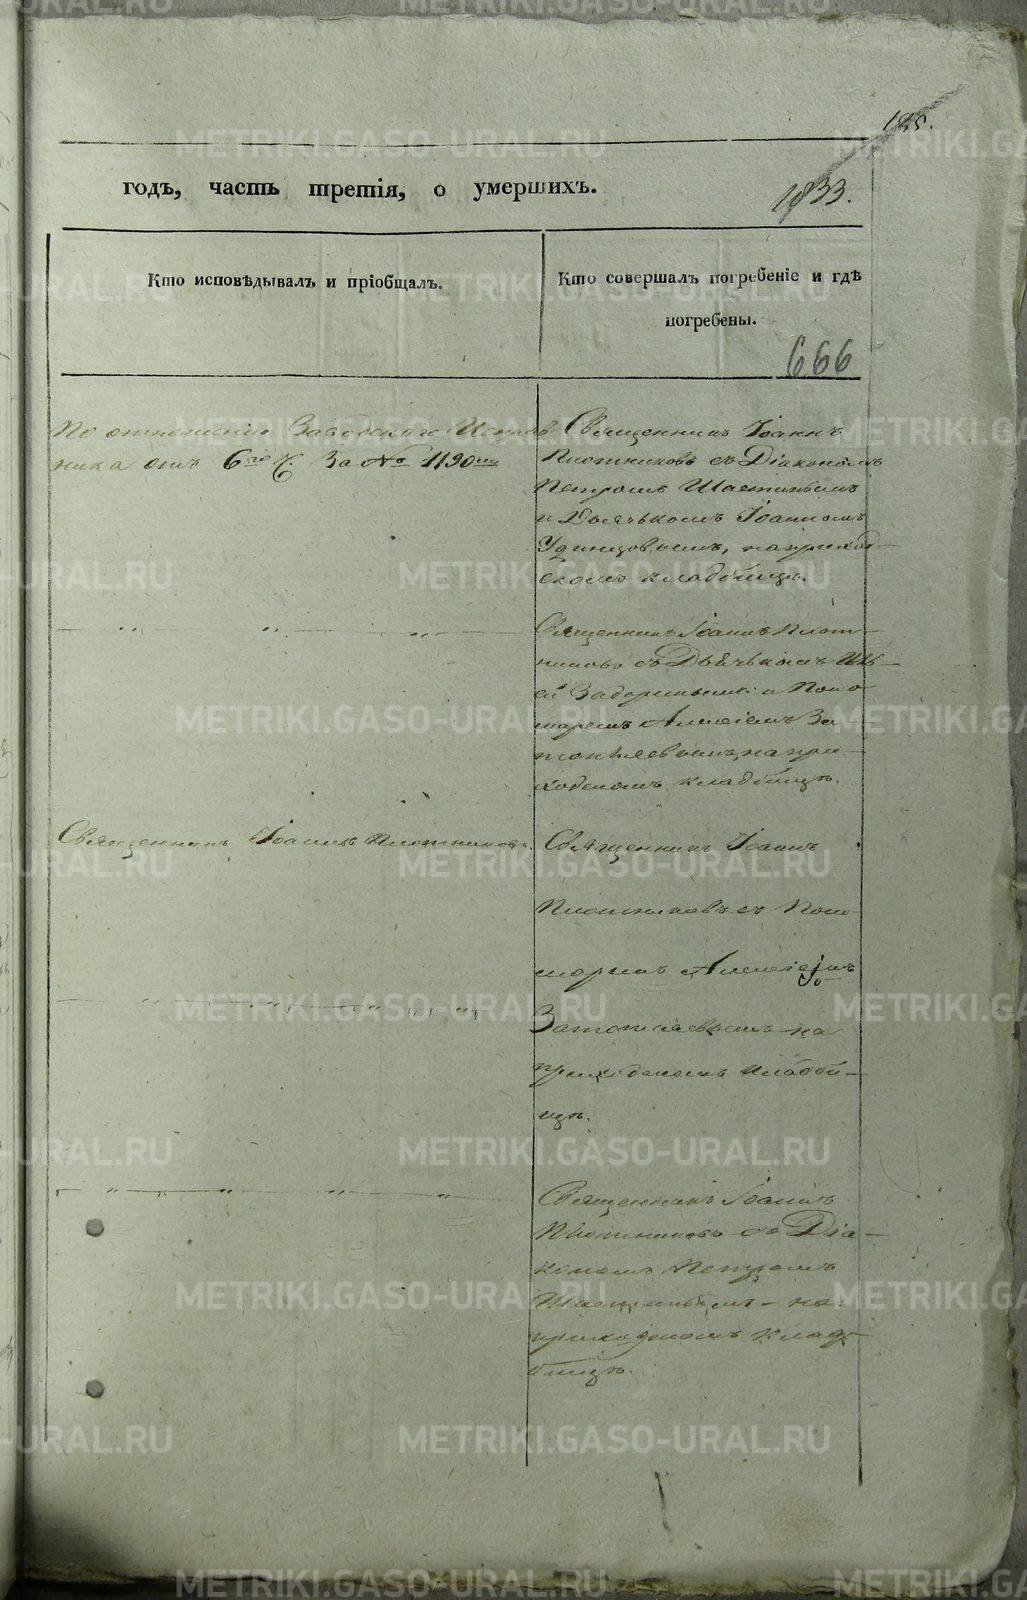 METRIKI.GASO-URAL.RU
185.
годъ, часть третія, о умершихъ.
1833.
Кто исповѣдывалъ и пріобщалъ.
Кто совершалъ погребеніе и гдѣ
погребены.
666
По отношенію Заводскаго Исправ
ника отъ 6го за № 1190мъ
Священникъ Іоаннъ
Плотниковъ съ Діакономъ
Петромъ
и Дьячькомъ Іоанномъ
Удинцовымъ, на приход-
скомъ кладбищѣ.
Священникъ Іоаннъ Плот-
никовъ съ Дьячькомъ Иль-
ей Задоринымъ и Поно
маремъ Алексіемъ За
топляевымъ, на при-
ходскомъ кладбищѣ.
Священникъ Іоаннъ Плотниковъ.
Священникъ Іоаннъ
Плотниковъ съ Поно
маремъ Алексіемъ
Затопляевымъ на
приходскомъ кладби-
щѣ.
Священникъ Іоаннъ
Плотниковъ съ Діа-
кономъ Петромъ
на
приходскомъ клад-
бищѣ.